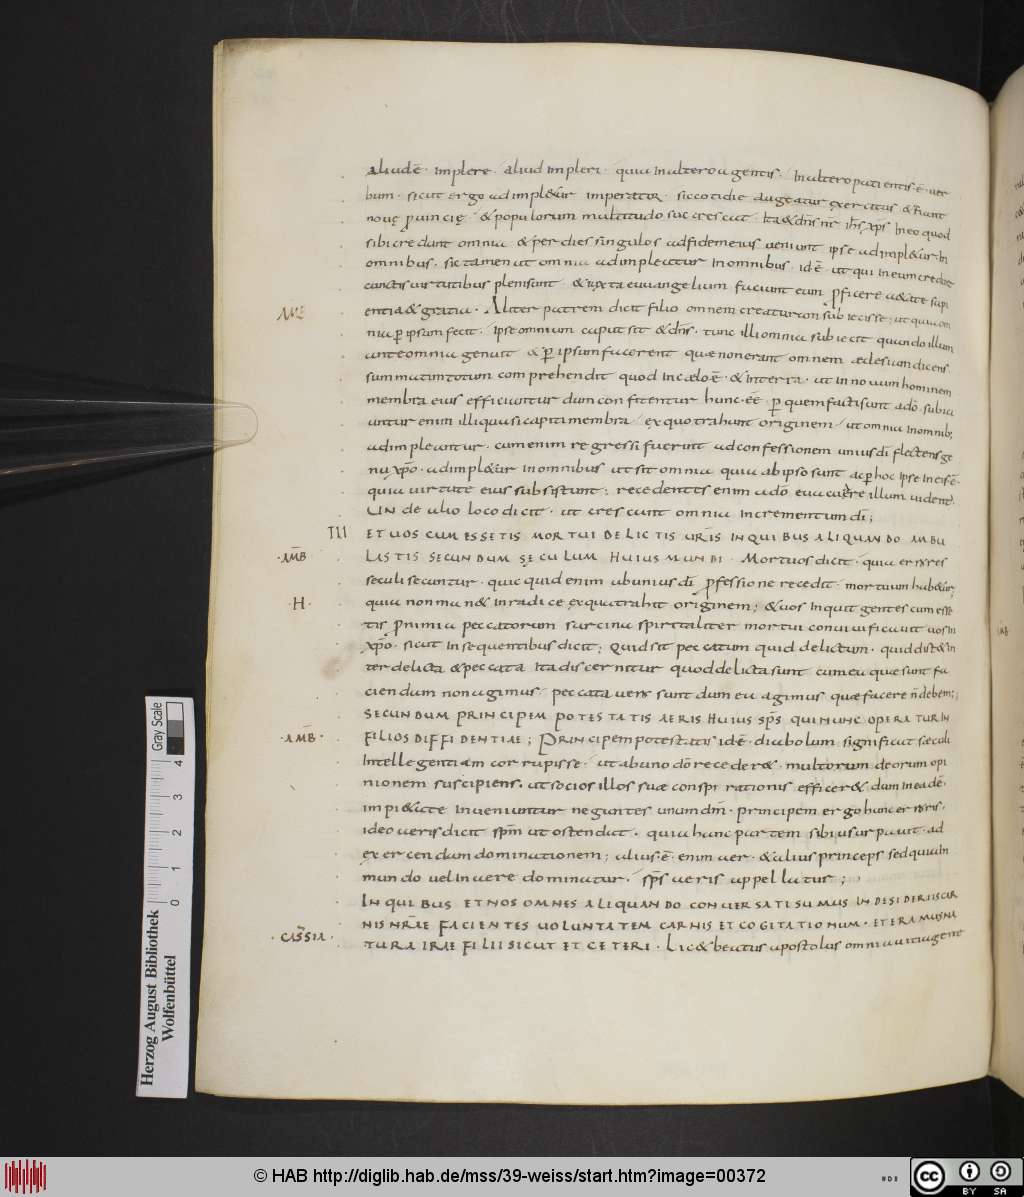 aliud ē · implere · aliud impleri · quia in altero augentis · in altero patientis ē · uer
bum · sicut ergo adimpl&ur imperator · si cottidie augeatur exercitus & fiant
nouę prouincię · & populorum multitudo succrescat · Ita & dn̄s nr̄ ih̄s xp̄s in eo quod
sibi credunt omnia & per dies singulos ad fidem eius ueniunt ipse adimpl&ur in
omnibus · sic tamen ut omnia adimpleatur in omnibus · id ē · ut qui in eum credunt
cunctis uirtutibus pleni sunt · & iuxta euuangelium faciunt eum proficere aetate sapi
entia & gratia · Aliter patrem dicit filio omnem creaturam subiecisse · ut quia om
AMB
nia per ipsum fecit · ipse omnium caput sit & dn̄s · tunc illi omnia subiecit quando illum
ante omnia genuit & per ipsum facerent quae non erant omnem aeclesiam dicens
summatim totum comprehendit quod in caelo ē · & in terra · ut in nouum hominem
membra eius efficiuntur dum confitentur hunc · eē · per quem facti sunt a dō subici
untur enim illi quasi capiti membra · ex quo trahunt originem · ut omnia in omnib;
adimpleantur · cum enim regressi fuerint ad confessionem unius dī flectens ge
nu xp̄o · adimpl&ur in omnibus ut sit omnia quia ab ipso sunt ac per hoc ipse in eis ē ·
quia uirtute eius subsistunt; recedentes enim a dō euacuare illum uident̄
Unde alio loco dicit · ut crescant omnia in crementum dī;
III ET UOS CUM ESSETIS MORTUI DELICTIS UR̄IS IN QUIBUS ALIQUANDO AMBU
· AMB LASTIS SECUNDUM SĘCULUM HUIUS MUNDI · Mortuos dicit · quia errores
seculi secuntur · quicquid enim ab unius dī professione recedit · mortuum hab&ur;
· H · quia non man& in radice ex qua trahit originem; & uos inquit gentes cum esse
tis prae nimia peccatorum sarcina spiritaliter mortui conuiuificauit uos in
xp̄o · sicut in sequentibus dicit; Quid sit peccatum quid delictum · quid dist& in
ter delicta & peccata Ita discernitur quod delicta sunt cum ea quae sunt fa
ciendum non agimus · peccata uero sunt dum ea agimus quae facere n̄ debem;;
SECUNDUM PRINCIPEM POTESTATIS AERIS HUIUS SP̄S QUI NUNC OPERATUR IN
· AMB · FILIOS DIFFIDENTIAE; Principem potestatis id ē · diabolum significat saeculi
Intellegentiam corrupisse · ut ab uno dō receder& · multorum deorum opi
nionem suscipiens · ut socios illos suae conspirationis efficer& · dum in ea dē ·
impi&ate inueniuntur negantes unum dm̄ · principem ergo hunc erroris ·
ideo aeris dicit sp̄m ut ostendat · quia hanc partem sibi usurpauit · ad
exercendum dominationem; alius · ē · enim aer · & alius princeps sed quia in
mundo uel in aere dominatur · sp̄s aeris appellatur;
IN QUIBUS ET NOS OMNES ALIQUANDO CONUERSATI SUMUS IN DESIDERIIS CAR
NIS NR̄AE FACIENTES UOLUNTATEM CARNIS ET COGITATIONUM · ET ERAMUS NA
· CASSIA · TURA IRAE FILII SICUT ET CETERI · Lic& beatus apostolus omnia uitia gene
Herzog August Bibliothek
Wolfenbüttel
Gray Scale
0 1 2 3 4
© HAB http://diglib.hab.de/mss/39-weiss/start.htm?image=00372
cc BY SA